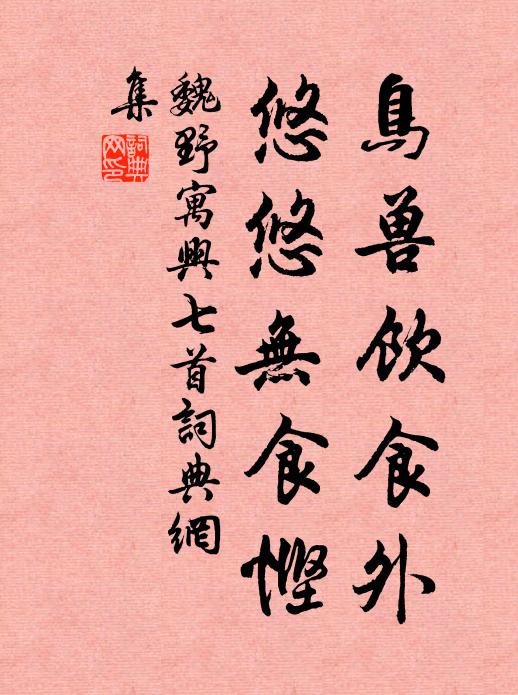 鳥兽飲食外
悠悠無食慳
魏野寓興七首詞典網
集
詞典
网印